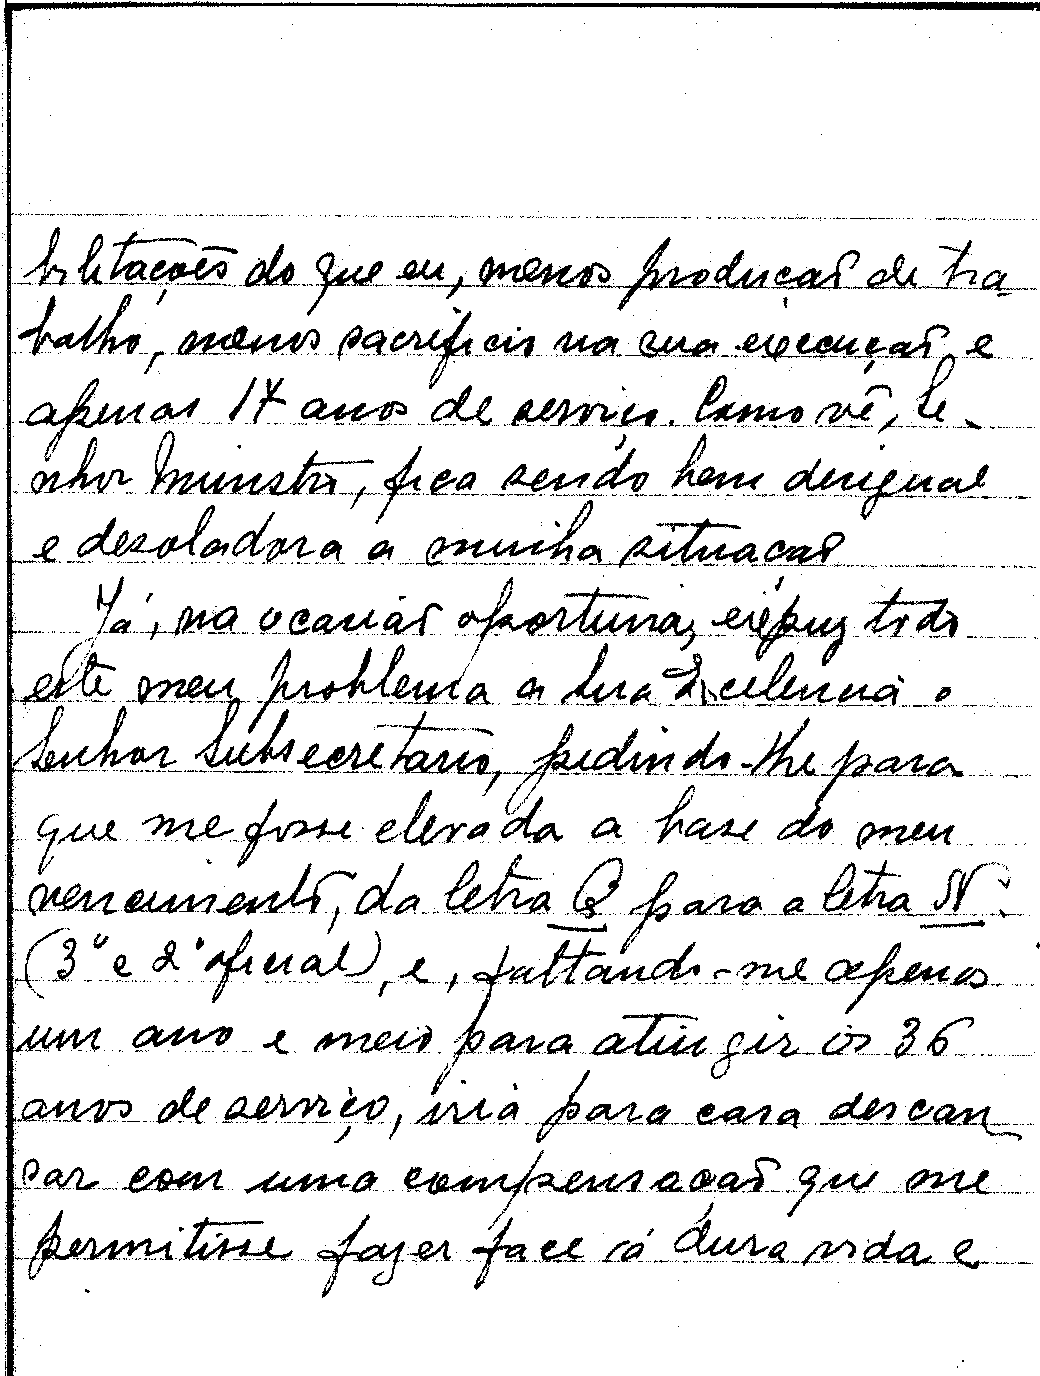 bilitações do que eu, menos produção de tra-
balho, menos sacrificio na sua execução, e
apenas 17 anos de serviço. Como vê, Se-
nhor Ministro, fica sendo bem desigual
e desoladora a minha situação
Já, na ocasião oportuna, expuz todo
este meu problema a Sua Excelencia o
Senhor Subsecretario, pedindo-lhe para
que me fosse elevada a base do meu
vencimento, da letra Q para a letra N.
(3º e 2º oficial), e, faltando-me apenas
um ano e meio para atingir os 36
anos de serviço, iria para casa descan-
sar com uma compensação que me
permitisse fazer face á dura vida e